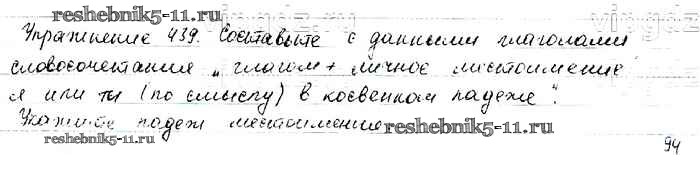 reshebnik5-11.ru
Упражнение 439. Составьте с данными глаголами
словосочетания „глагол + личное местоимение
я или ты (по смыслу) в косвенном падеже“.
Укажите падеж местоимения
reshebnik5-11.ru
94